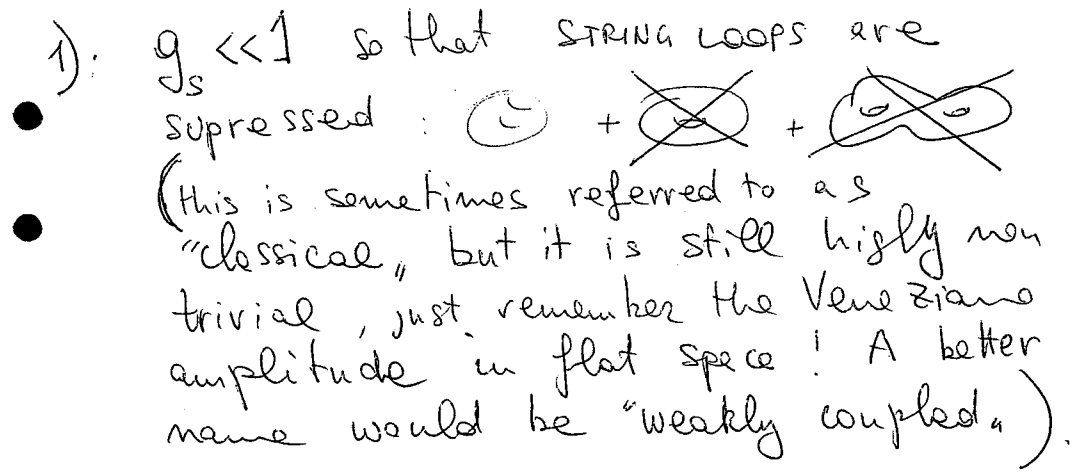 1): g_s <<1 so that STRING LOOPS are
supressed : + +
(this is sometimes referred to as
"classical„ but it is still higly non
trivial, just remember the Veneziano
amplitude in flat space ! A better
name would be "weakly coupled„).